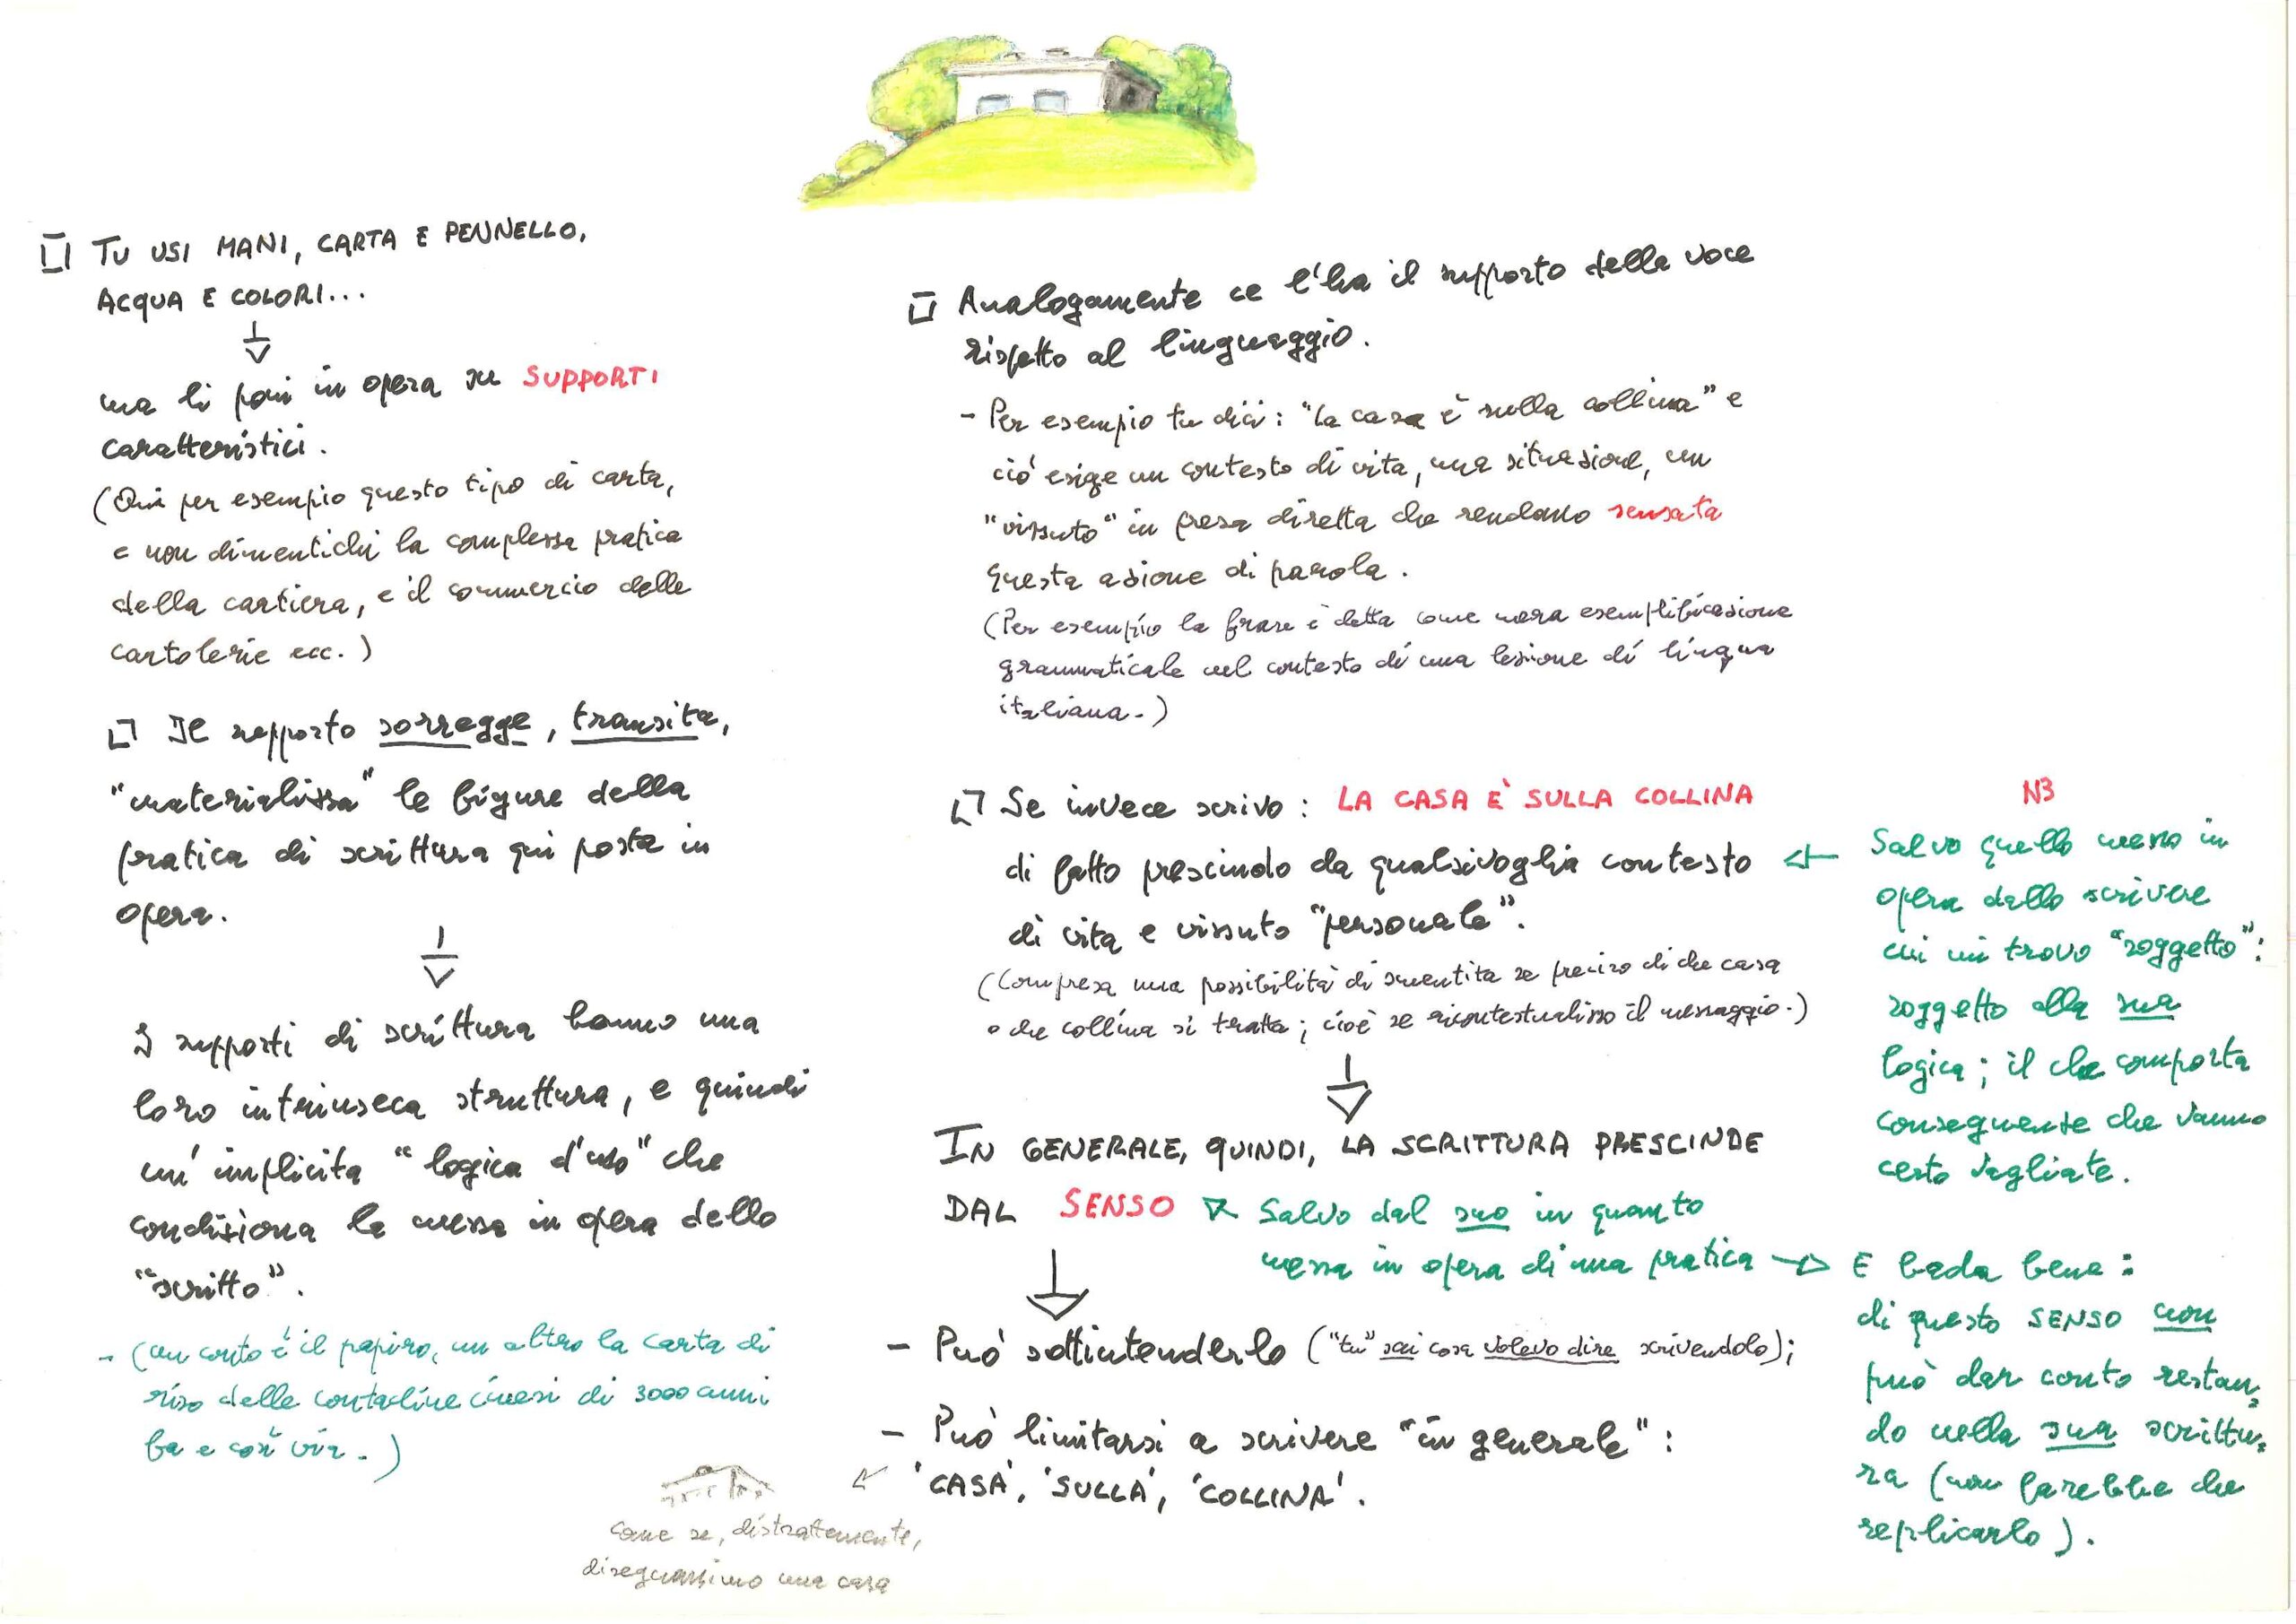 TU USI MANI, CARTA E PENNELLO,
ACQUA E COLORI...
ma li poni in opera su SUPPORTI
caratteristici.
(Qui per esempio questo tipo di carta,
e non dimentichi la complessa pratica
della cartiera, e il commercio delle
cartolerie ecc.)
Il supporto sorregge, transita,
"materializza" le figure della
pratica di scrittura qui posta in
opera.
I supporti di scrittura hanno una
loro intrinseca struttura, e quindi
un'implicita "logica d'uso" che
condiziona la messa in opera dello
"scritto".
- (un conto è il papiro, un altro la carta di
riso delle contadine cinesi di 3000 anni
fa e così via.)
Analogamente ce l'ha il supporto della voce
rispetto al linguaggio.
- Per esempio tu dici: "la casa è sulla collina" e
ciò esige un contesto di vita, una situazione, un
"vissuto" in presa diretta che rendano sensata
questa azione di parola.
(Per esempio la frase è detta come mera esemplificazione
grammaticale nel contesto di una lezione di lingua
italiana.)
Se invece scrivo: LA CASA È SULLA COLLINA
di fatto prescindo da qualsivoglia contesto
di vita e vissuto "personale".
(Compresa una possibilità di smentita se preciso di che casa
o che collina si tratta; cioè se ricontestualizzo il messaggio.)
IN GENERALE, QUINDI, LA SCRITTURA PRESCINDE
DAL SENSO Salvo dal suo in quanto
messa in opera di una pratica
- Può sottintenderlo ("tu" sai cosa volevo dire scrivendolo);
- Può limitarsi a scrivere "in generale":
'CASA', 'SULLA', 'COLLINA'.
come se, distrattamente,
disegnassimo una casa
N3
Salvo quello messo in
opera dallo scrivere
cui mi trovo "soggetto":
soggetto alla sua
logica; il che comporta
conseguenze che vanno
certo vagliate.
E bada bene:
di questo SENSO non
può dar conto restan=
do nella sua scrittu=
ra (non farebbe che
replicarlo).